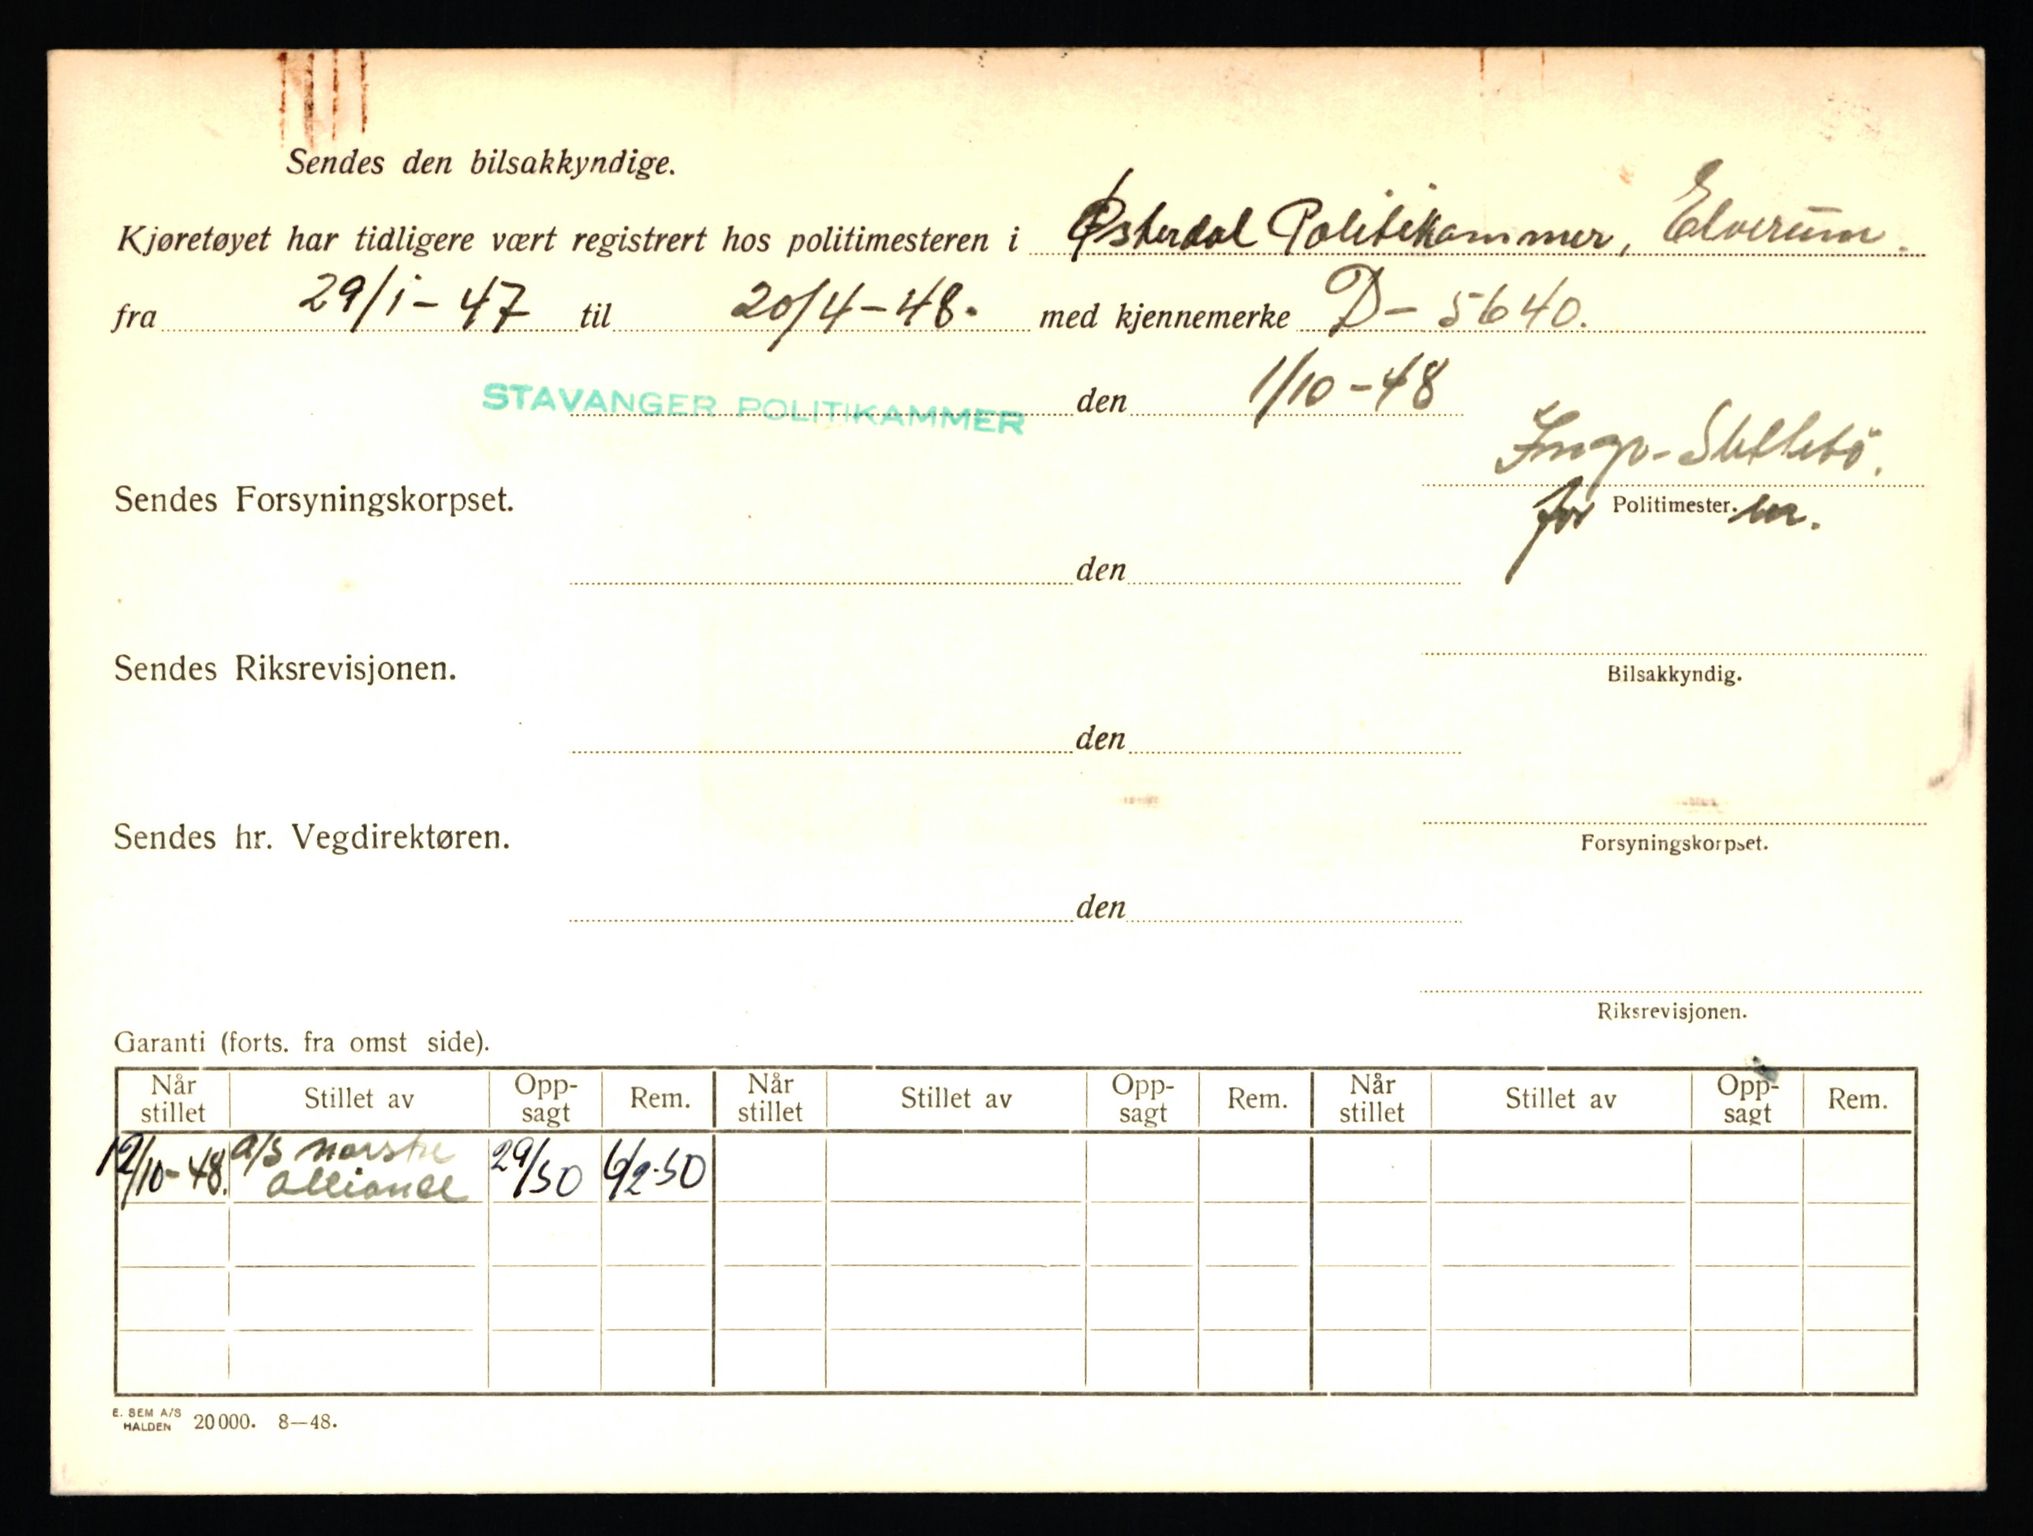 Sendes den bilsakkyndige.
Kjøretøyet har tidligere vært registrert hos politimesteren i Østerdal Politikammer, Elverum.
fra 29/1-47 til 20/4-48. med kjennemerke D-5640.
STAVANGER POLITIKAMMER den 1/10-48
Sendes Forsyningskorpset.
for Politimesteren.
den
Sendes Riksrevisjonen.
Bilsakkyndig.
den
Sendes hr. Vegdirektøren.
Forsyningskorpset.
den
Riksrevisjonen.
Garanti (forts. fra omst side).
Når stillet Stillet av Opp-sagt Rem. Når stillet Stillet av Opp-sagt Rem. Når stillet Stillet av Opp-sagt Rem.
12/10-48. a/s norske 29/50 6/2-50
alliance
E. SEM A/S
HALDEN 20000. 8—48.